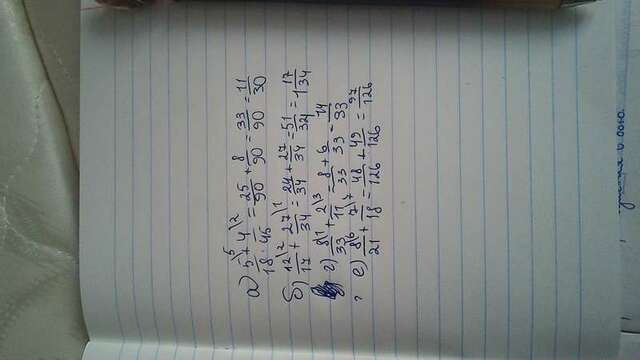 а) 5\5/18 + 4\2/45 = 25/90 + 8/90 = 33/90 = 11/30
б) 12\2/17 + 27\1/34 = 24/34 + 27/34 = 51/34 = 1 17/34
г) 8\1/33 + 2\3/11 = 8/33 + 6/33 = 14/33
? е) 8\6/21 + 7\7/18 = 48/126 + 49/126 = 97/126
в